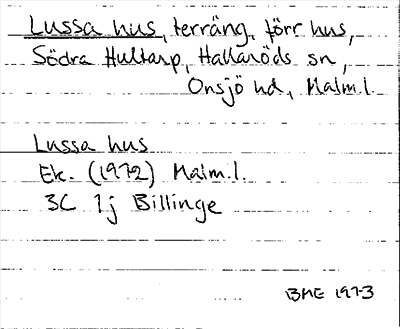 Lussa hus, terräng, förr hus,
Södra Hultarp, Hallaröds sn,
Onsjö hd, Malm.l.
Lussa hus
Ek. (1972) Malm.l.
3C 1j Billinge
BME 1973